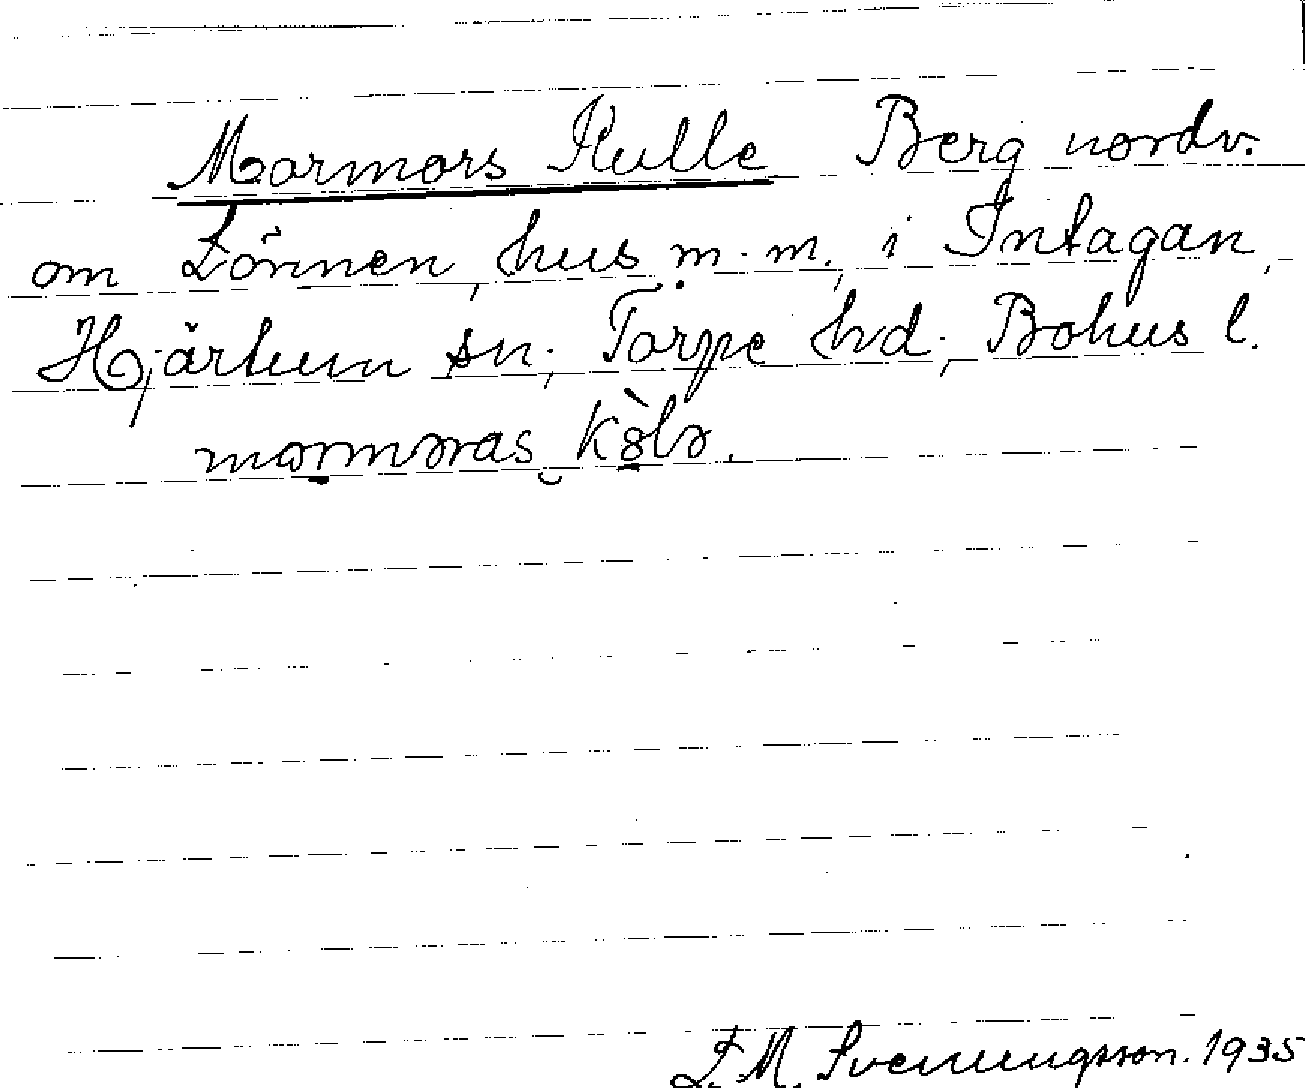 Mormors Kulle Berg nordv.
om Lönnen, hus m. m., i Intagan,
Hjärtum sn; Torpe hd; Bohus l.
mormoras
F. M. Svenungsson. 1935